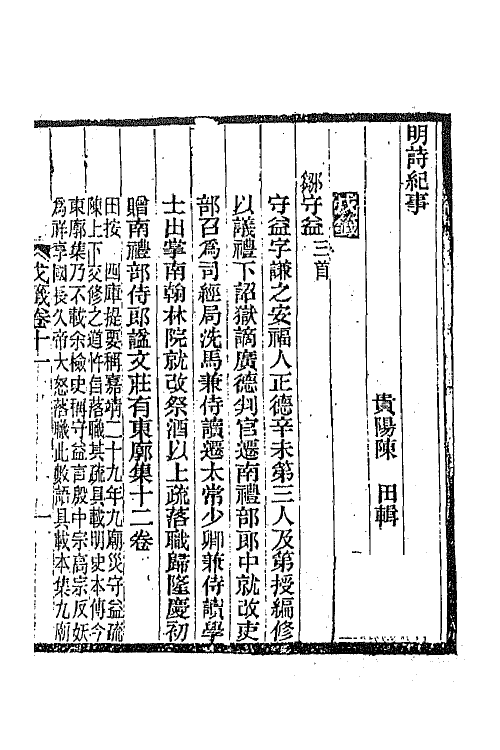 明詩紀事
貴陽陳 田輯
戊籤
鄒守益三首
守益字謙之安福人正德辛未第三人及第授編修
以議禮下詔獄謫廣德判官遷南禮部郎中就改吏
部召爲司經局洗馬兼侍讀遷太常少卿兼侍讀學
士出掌南翰林院就改祭酒以上疏落職歸隆慶初
贈南禮部侍郎諡文莊有東廓集十二卷
田按 四庫提要稱嘉靖二十九年九廟災守益疏
陳上下交修之道忤旨落職其疏具載明史本傳今
東廓集乃不載余檢史稱守益言殷中宗高宗反妖
爲祥享國長久帝大怒落職此數語具載本集九廟
戊籤卷十一 一